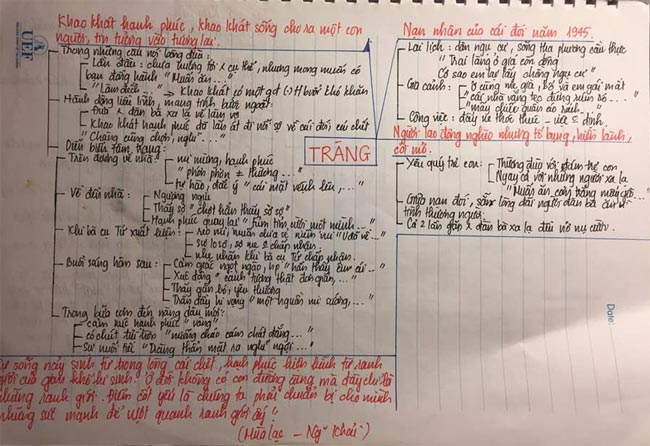 Khao khát hạnh phúc, khao khát sống cho ra một con
người, tin tưởng vào tương lai.
Trong những câu nói bông đùa:
Lần đầu: chưa tưởng tới x cụ thể, nhưng mong muốn có
bạn đồng hành "Muốn ăn..."
"Làm đếch" → Khao khát có một gđ
Hành động liều lĩnh, mang tính bước ngoặt:
Đưa x đàn bà xa lạ về làm vợ
Khao khát hạnh phúc đã lấn át đi nỗi sợ về cái đói, cái chết
"Chàng cũng chợn, nghĩ"..."
Diễn biến tâm trạng:
Trên đường về nhà:
vui mừng, hạnh phúc
"phởn phơ ≠ thường..."
tự hào, đắc ý "cái mặt vênh lên,..."
Về đến nhà:
Ngượng nghịu
Thấy sợ "chợt hắn thấy sờ sợ"
Hạnh phúc quay lại "tủm tỉm cười một mình..."
Khi bà cụ Tứ xuất hiện:
reo lên, muốn chia sẻ niềm vui "U đã về..."
sự lo sợ, sợ mẹ ko chấp nhận.
nhẹ nhõm khi bà cụ Tứ chấp nhận.
Buổi sáng hôm sau:
Cảm giác ngọt ngào, hp "hắn thấy êm ái..."
Xúc động "cảnh tượng thật đơn giản,..."
Thấy gắn bó, yêu thương
Tràn đầy hi vọng "một nguồn vui sướng,..."
Trong bữa cơm đến nạn đầu mới:
cảm xúc hạnh phúc "vâng"
có chút tủi hờn "miếng cháo cám chát đắng..."
Sự nuối tiếc "Tràng thần mặt ra nghĩ ngợi..."
TRÀNG
Nạn nhân của cái đói năm 1945.
Lai lịch: dân ngụ cư, sống tha phương cầu thực
"Trai làng ở giá còn đông
Cớ sao em lại lấy chồng ngụ cư"
Gia cảnh:
Ở cùng mẹ già, bố và em gái mất
"cái nhà vắng teo đứng rúm ró..."
"mấy chiếc quần áo rách..."
Công việc: đẩy xe thóc thuê
Người lao động nghèo nhưng tốt bụng, hiền lành,
cởi mở.
Yêu quý trẻ con:
Thường đùa với đám trẻ con
Ngay cả với những người xa lạ
"Muốn ăn cơm trắng mấy giò..."
Giữa nạn đói, sẵn lòng đãi người đàn bà
tình thương người.
Cả 2 lần gặp x đàn bà xa lạ đều nở nụ cười.
sự sống nảy sinh từ trong lòng cái chết, hạnh phúc hiện hình từ
giới của gian khổ hi sinh. Ở đời không có con đường cùng mà đấy chỉ là
những ranh giới. Điều cốt yếu là chúng ta phải chuẩn bị cho mình
những sức mạnh để vượt qua ranh giới ấy"
(Mùa lạc - Ng~ Khải)
UEF
Date: